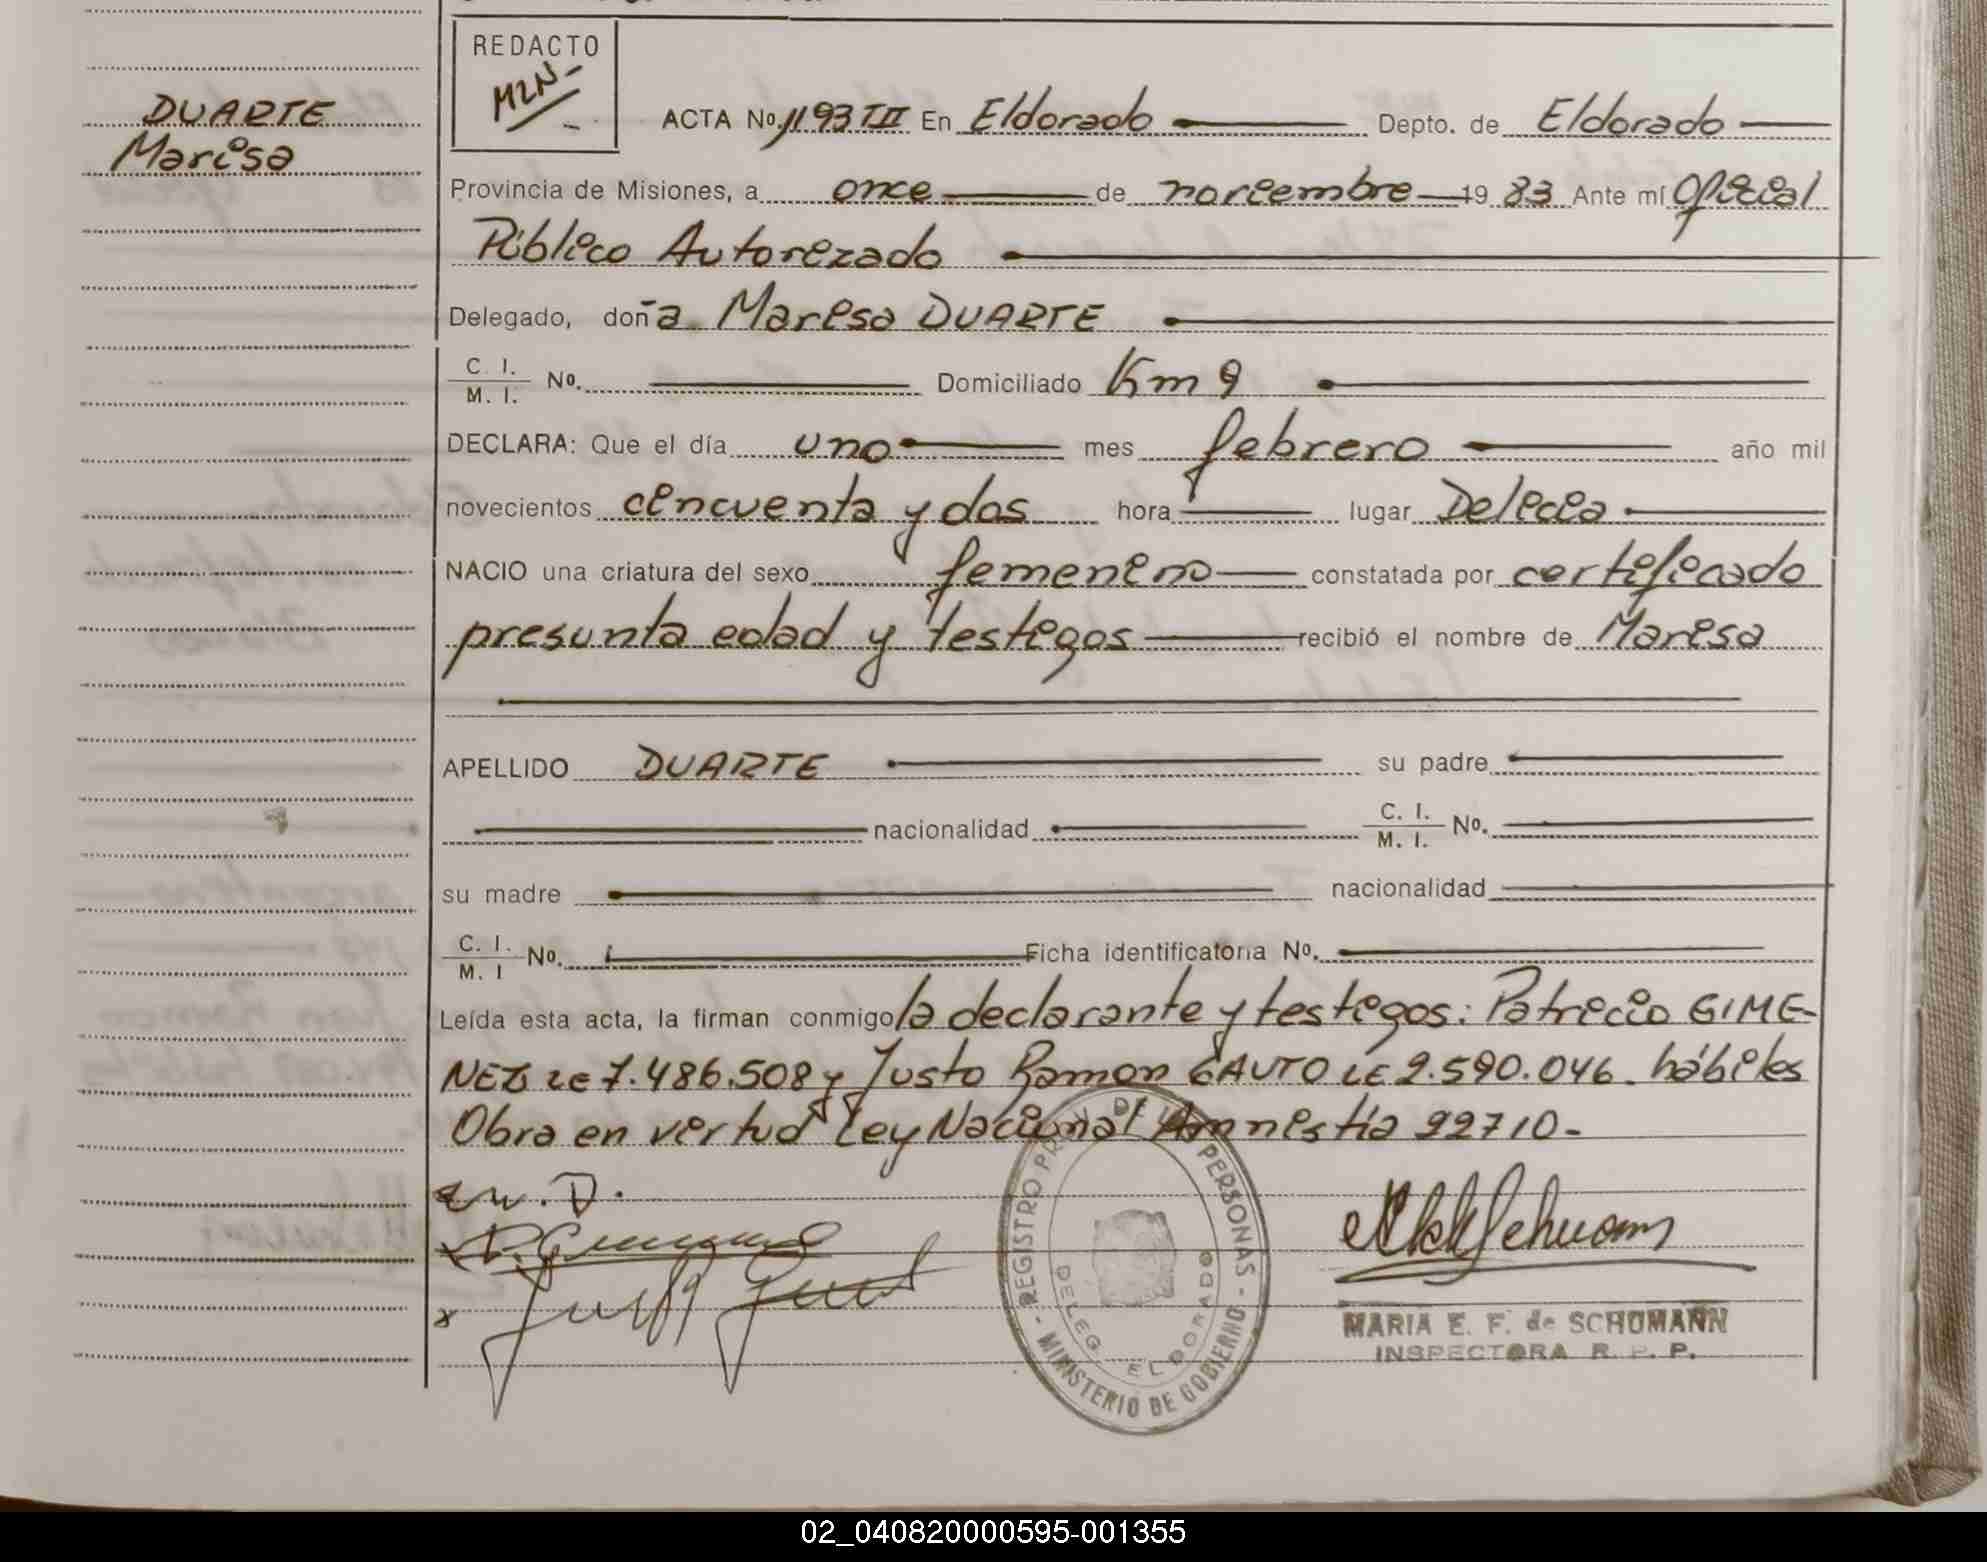 DUARTE
Marisa
REDACTO
MZN-
ACTA No. 1193 TIII En Eldorado Depto. de Eldorado
Provincia de Misiones, a once de noviembre 19 83 Ante mí Oficial
Público Autorizado
Delegado, doña Marisa DUARTE
C. I. / M. I. No. Domiciliado Km 9
DECLARA: Que el día uno mes febrero año mil
novecientos cincuenta y dos hora lugar Delicia
NACIO una criatura del sexo femenino constatada por certificado
presunta edad y testigos recibió el nombre de Marisa
APELLIDO DUARTE su padre
nacionalidad C. I. / M. I. No.
su madre nacionalidad
C. I. / M. I No. Ficha identificatoria No.
Leída esta acta, la firman conmigo la declarante y testigos: Patricio GIME-
NEZ LE 7.486.508 y Justo Ramon GAUTO LE 2.590.046. hábiles
Obra en virtud Ley Nacional Amnistía 22710-
M. D.
REGISTRO PROV. DE LAS PERSONAS - MINISTERIO DE GOBIERNO -
DELEG. ELDORADO
MARIA E. F. de SCHUMANN
INSPECTORA R. P. P.
02_040820000595-001355